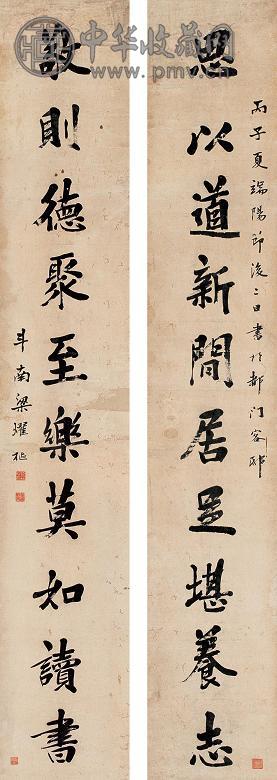 中华收藏网
www.pmv.cn
丙子夏端陽節後二日書於都門客邸
思以道新閒居足堪養志
敬則德聚至樂莫如讀書
斗南梁耀樞